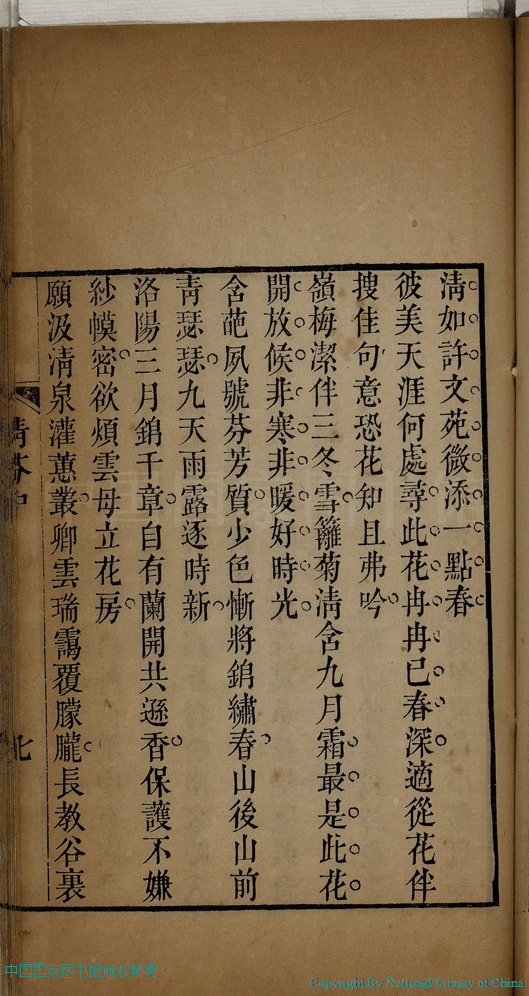 淸如許文苑微添一點春
彼美天涯何處尋此花冉冉已春深適從花伴
搜佳句意恐花知且弗吟
嶺梅潔伴三冬雪籬菊淸含九月霜最是此花
開放候非寒非暖好時光
含葩夙號芬芳質少色慚將錦繡春山後山前
靑瑟瑟九天雨露逐時新
洛陽三月錦千章自有蘭開共遜香保護不嫌
紗幙密欲煩雲母立花房
願汲淸泉灌蕙叢卿雲瑞靄覆朦朧長教谷裏
中国国家图书馆版权所有
Copyright By National Library of China